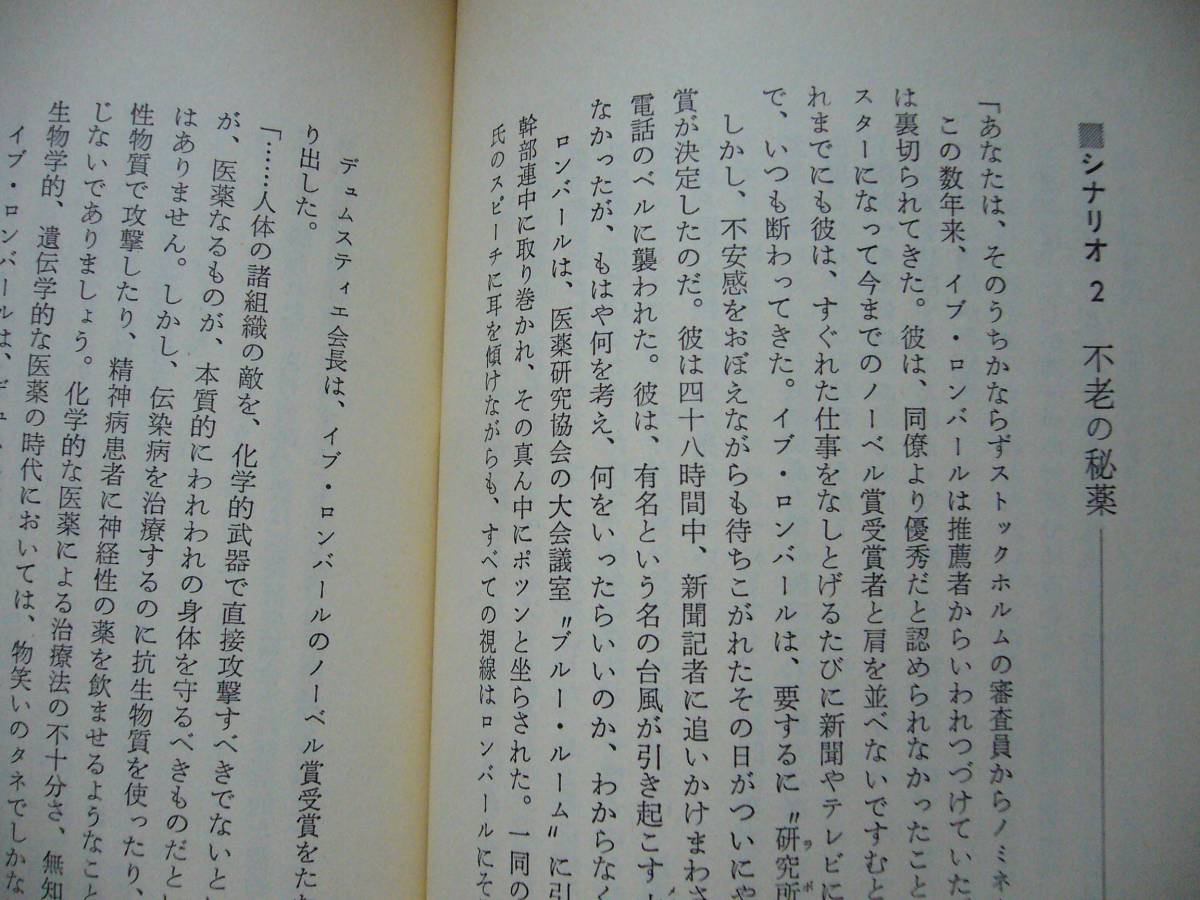 シナリオ 2 不老の秘薬
「あなたは、そのうちかならずストックホルムの審査員からノミネ
この数年来、イブ・ロンバールは推薦者からいわれつづけていた
は裏切られてきた。彼は、同僚より優秀だと認められなかったこと
スターになって今までのノーベル賞受賞者と肩を並べないですむと
れまでにも彼は、すぐれた仕事をなしとげるたびに新聞やテレビに
で、いつも断わってきた。イブ・ロンバールは、要するに〝研究所
ラボ
しかし、不安感をおぼえながらも待ちこがれたその日がついにや
賞が決定したのだ。彼は四十八時間中、新聞記者に追いかけまわさ
電話のベルに襲われた。彼は、有名という名の台風が引き起こす
なかったが、もはや何を考え、何をいったらいいのか、わからなく
ロンバールは、医薬研究協会の大会議室〝ブルー・ルーム〟に引
幹部連中に取り巻かれ、その真ん中にポツンと坐らされた。一同の
氏のスピーチに耳を傾けながらも、すべての視線はロンバールにそ
デュムスティエ会長は、イブ・ロンバールのノーベル賞受賞をた
り出した。
「……人体の諸組織の敵を、化学的武器で直接攻撃すべきでないと
が、医薬なるものが、本質的にわれわれの身体を守るべきものだと
はありません。しかし、伝染病を治療するのに抗生物質を使ったり、
性物質で攻撃したり、精神病患者に神経性の薬を飲ませるようなこと
じないでありましょう。化学的な医薬による治療法の不十分さ、無知
生物学的、遺伝学的な医薬の時代においては、物笑いのタネでしかな
イブ・ロンバールは、デュ